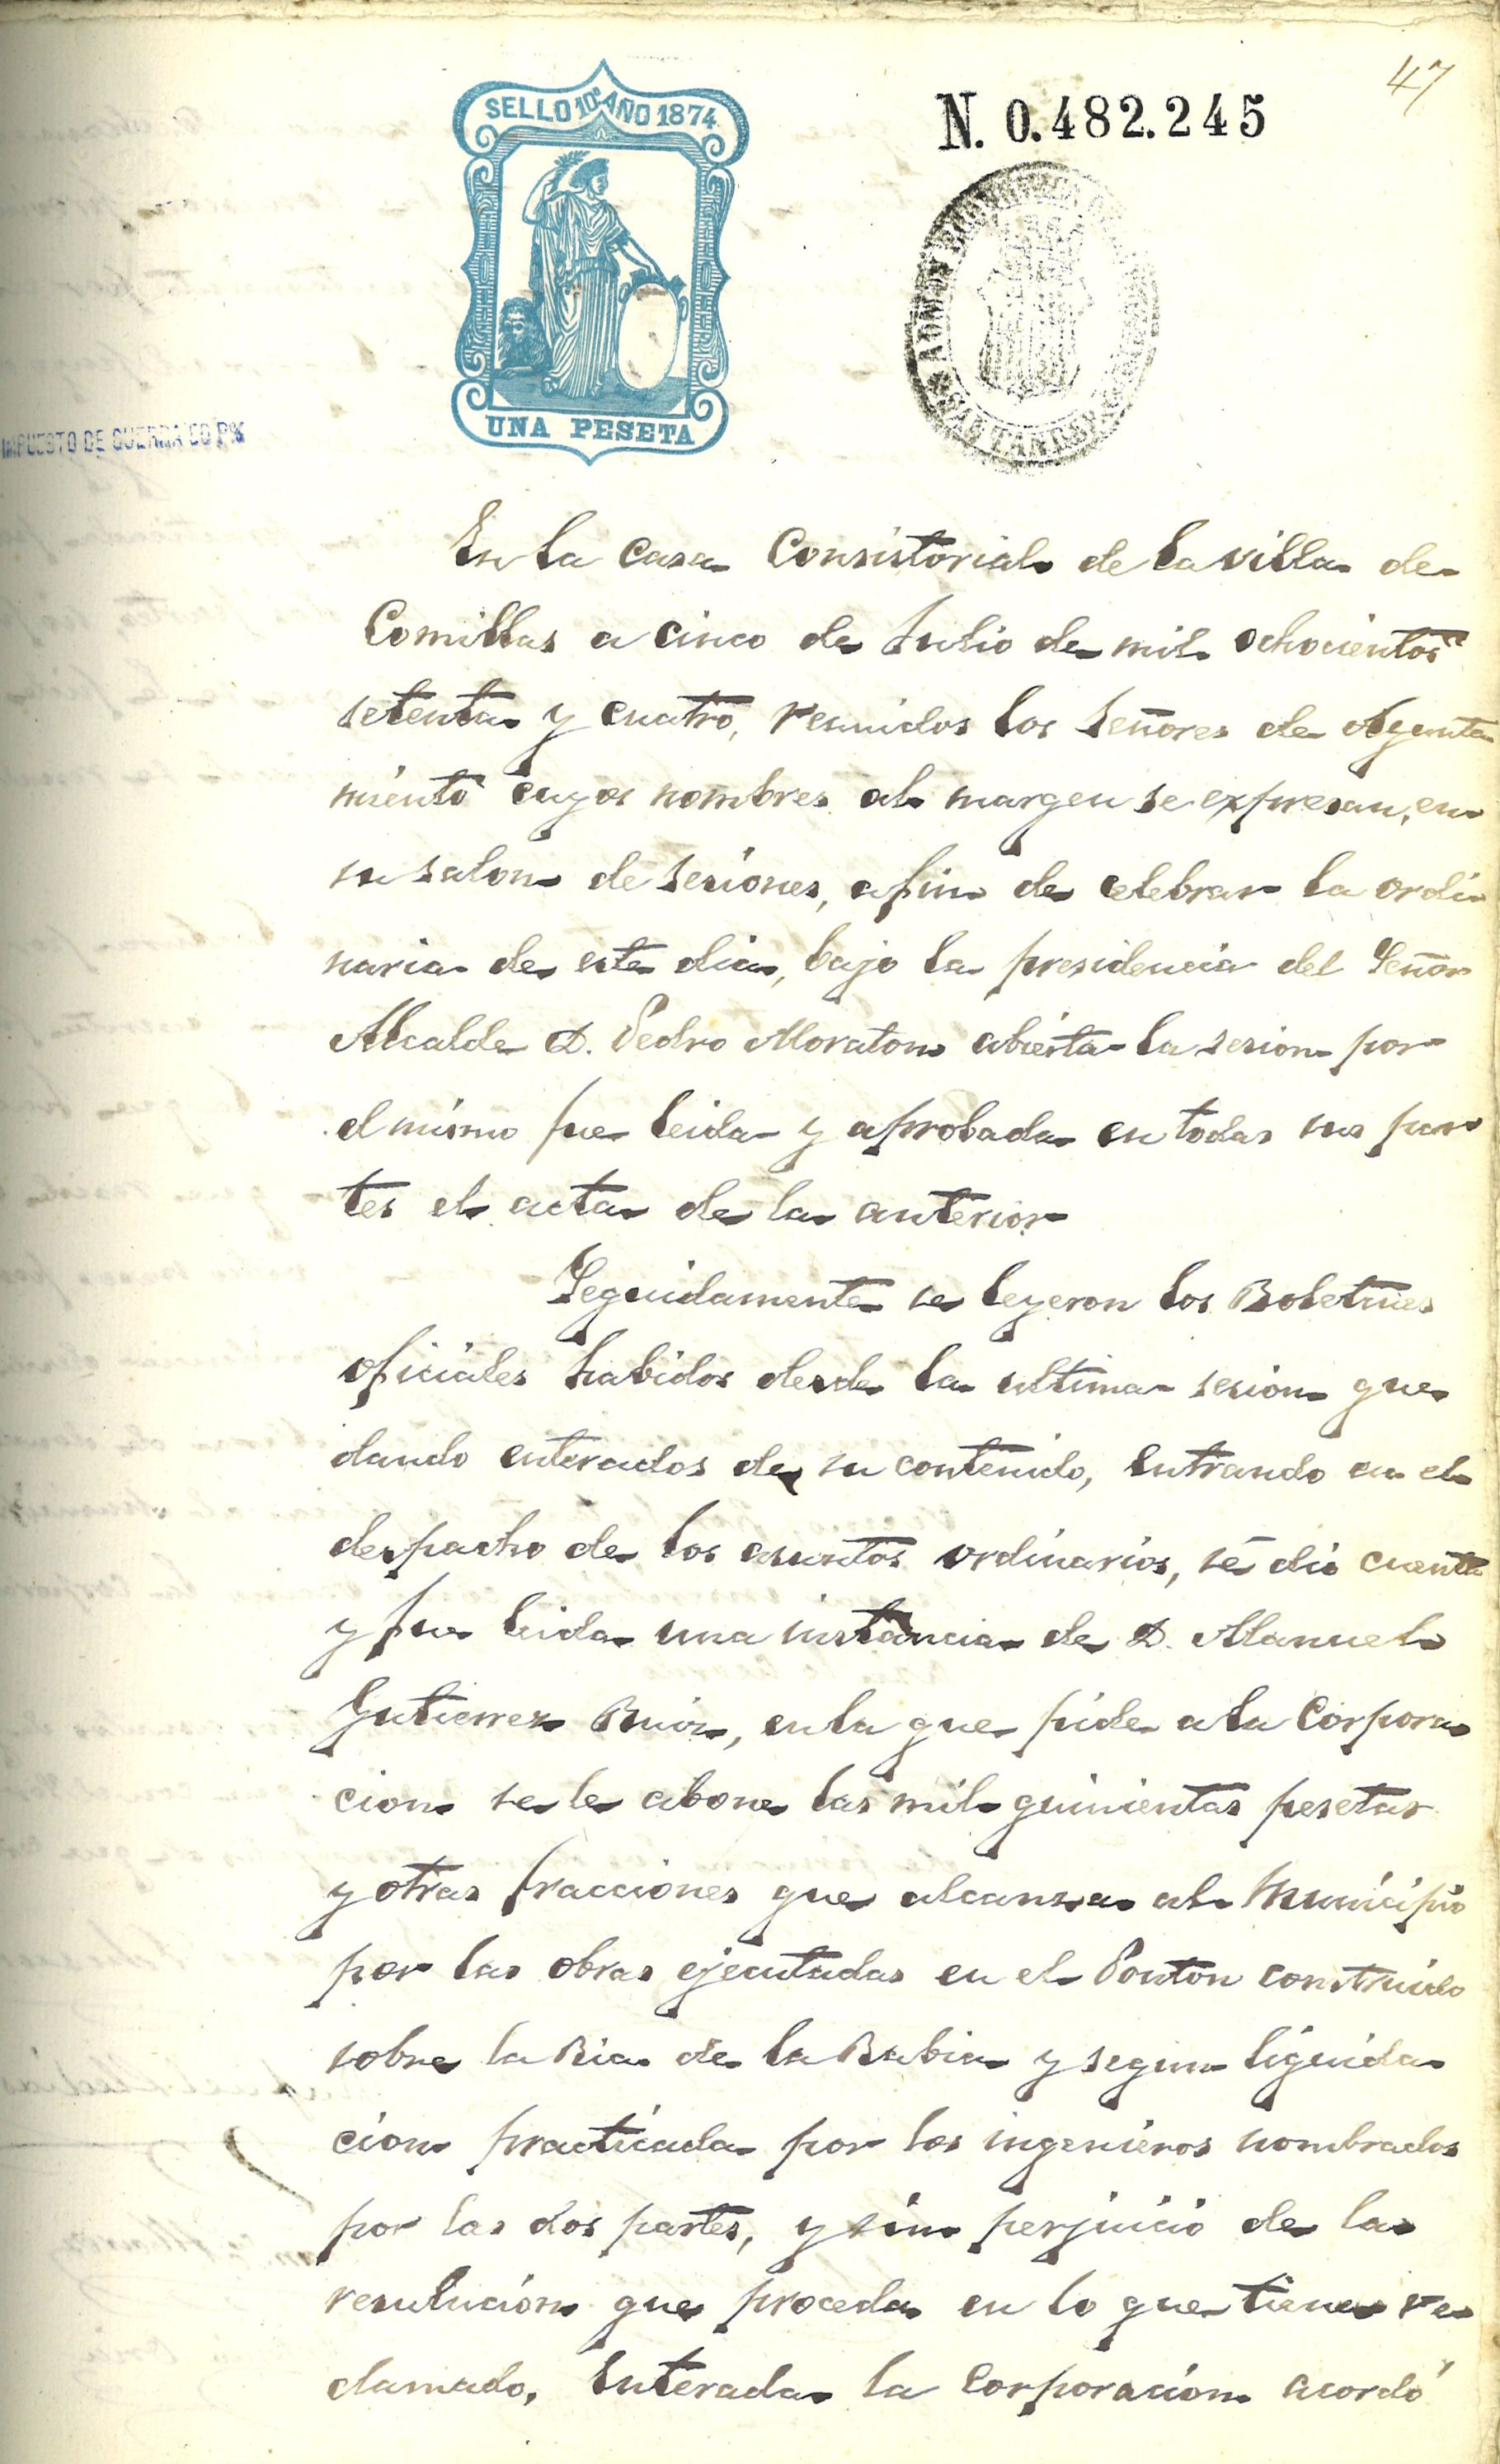 47
SELLO 10º AÑO 1874
N. 0.482.245
UNA PESETA
IMPUESTO DE GUERRA 50 P%
En la casa Consistorial de la villa de
Comillas a cinco de Julio de mil ochocientos
setenta y cuatro, reunidos los Señores de Ayunta
miento cuyos nombres al margen se expresan, en
su salon de sesiones, afin de celebrar la ordi
naria de este dia, bajo la presidencia del Señor
Alcalde D. Pedro Moraton abierta la sesion por
el mismo fue leida y aprobada en todas sus par
tes el acta de la anterior
Seguidamente se leyeron los Boletines
oficiales habidos desde la ultima sesion que
dando enterados de su contenido, entrando en el
despacho de los asuntos ordinarios, se dió cuenta
y fue leida una instancia de D. Manuel
Gutierrez Ruiz, en la que pide a la Corpora
cion se le abone las mil quinientas pesetas
y otras fracciones que alcanza al Municipio
por las obras ejecutadas en el Ponton construido
sobre la Ria de la Rabia y segun liquida
cion practicada por los ingenieros nombrados
por las dos partes, y sin perjuicio de la
resulucion que proceda en lo que tiene re
clamado, Enterada la Corporacion acordó